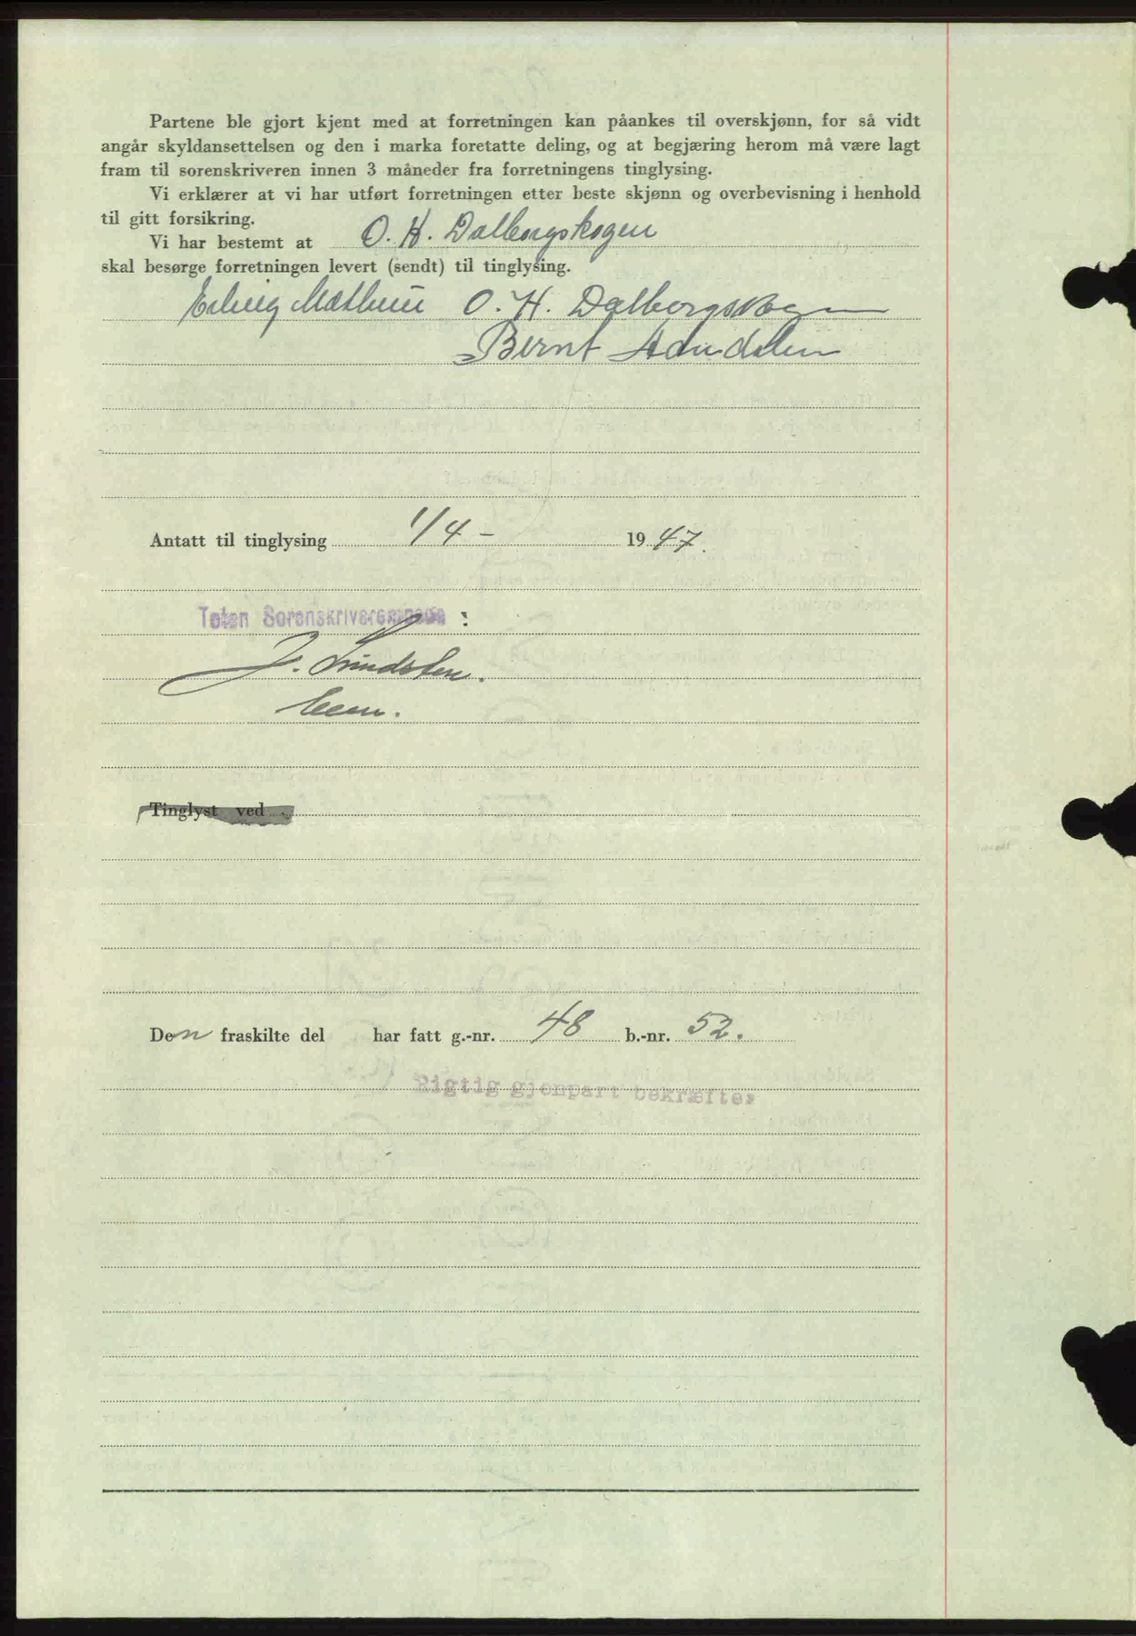 Partene ble gjort kjent med at forretningen kan påankes til overskjønn, for så vidt
angår skyldansettelsen og den i marka foretatte deling, og at begjæring herom må være lagt
fram til sorenskriveren innen 3 måneder fra forretningens tinglysing.
Vi erklærer at vi har utført forretningen etter beste skjønn og overbevisning i henhold
til gitt forsikring.
Vi har bestemt at O. H. Dalborgskogen
skal besørge forretningen levert (sendt) til tinglysing.
O. H. Dalborgskogen
Bernt
Antatt til tinglysing 1/4 - 1947.
Toten Sorenskriverembede :
J. Lindsten.
Tinglyst ved
Den fraskilte del har fatt g.-nr. 48 b.-nr. 52.
Rigtig gjenpart bekræftes